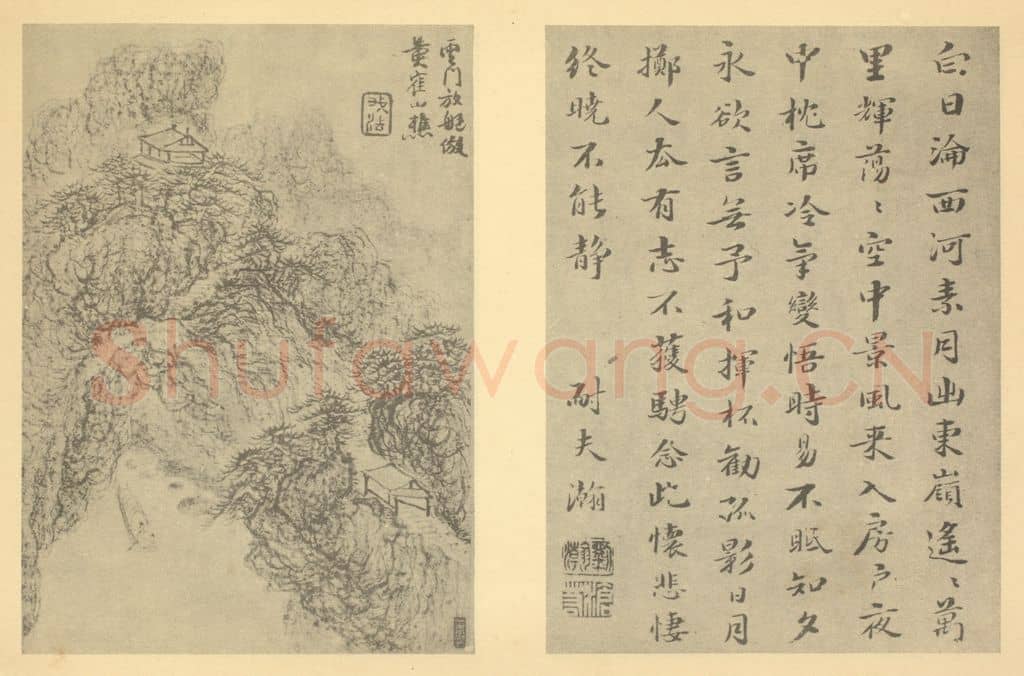 白日淪西河素月出東嶺遙〻萬
里輝蕩〻空中景風来入房户夜
中枕席冷氣變悟時易不眠知夕
永欲言無予和揮杯勸孤影日月
擲人去有志不獲騁念此懷悲悽
終曉不能静 耐夫瀚
雲门放艇倣
黄隺山樵
Shufawang.CN